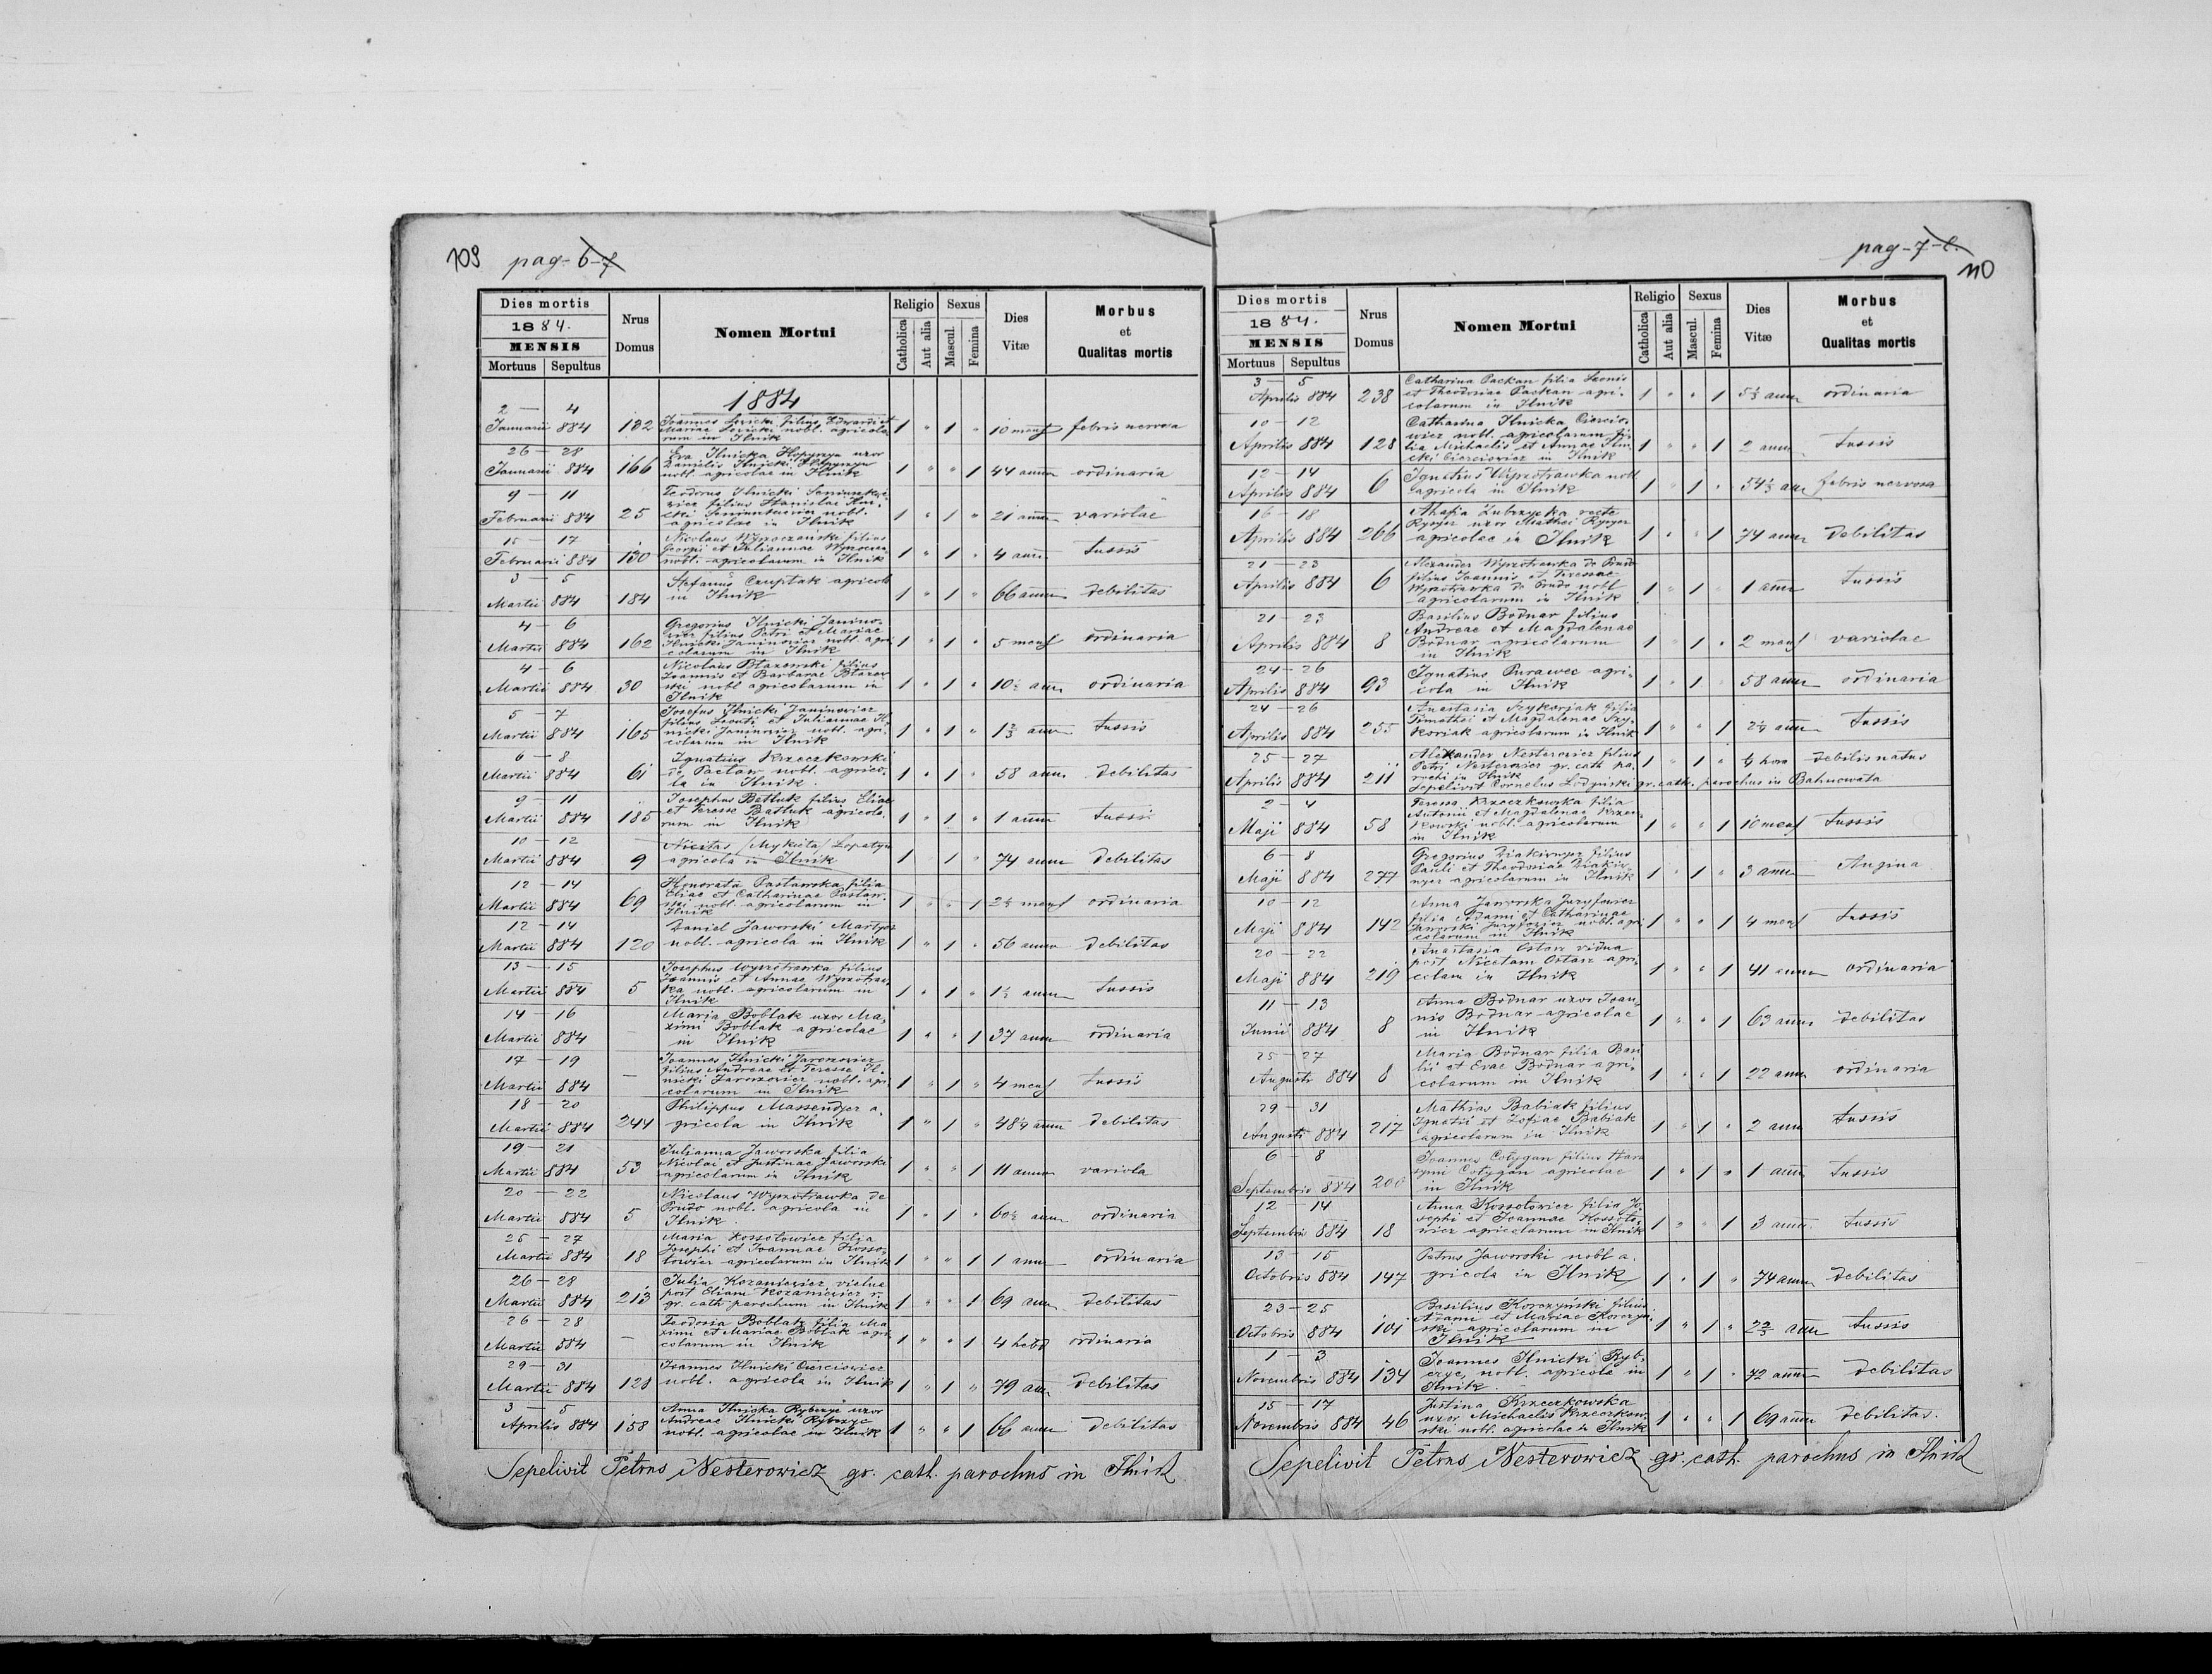 109 pag-6-7
Dies mortis
1884.
MENSIS
Mortuus Sepultus
Nrus Domus
Nomen Mortui
Religio
Catholica Aut alia
Sexus
Mascul. Femina
Dies Vitæ
Morbus et Qualitas mortis
1884
2 — 4
Januarii 884 182 Joannes filius Edwardi et
Mariae nobl. agricola
rum in Ilnik 1 " 1 " 10 mens febris nervosa
26 — 28
Januarii 884 166 Eva Ilnicka Hopynyn uxor
Danielis Ilnicki Hopynyn
nobl. agricolae in Ilnik 1 " " 1 44 annor ordinaria
9 — 11
Februarii 884 25 Teodorus Ilnicki
filius Stanislai Ilni-
cki nobl.
agricolae in Ilnik 1 " 1 " 21 annor variolae
15 — 17
Februarii 884 130 Nicolaus Wysoczański filius
Georgii et Juliannae Wysoczan
nobl. agricolarum in Ilnik 1 " 1 " 4 annor tussis
3 — 5
Martii 884 184 Stefanus Czuptak agricola
in Ilnik 1 " 1 " 66 annor debilitas
4 — 6
Martii 884 162 Gregorius Ilnicki Janino-
wicz filius Petri et Mariae
Ilnicki Janinowicz nobl. agri
colarum in Ilnik 1 " 1 " 5 mens ordinaria
4 — 6
Martii 884 30 Nicolaus Błazowski filius
Joannis et Barbarae Błazow
ski nobl agricolarum in
Ilnik 1 " 1 " 10½ ann ordinaria
5 — 7
Martii 884 165 Josefus Ilnicki Janinowicz
filius Leonti et Juliannae Il-
nicki Janinowicz nobl. agri-
colarum in Ilnik 1 " 1 " 1⅔ ann tussis
6 — 8
Martii 884 61 Ignatius Krzeczkowski
de Pactaw nobl. agrico-
la in Ilnik 1 " 1 " 58 ann. debilitas
9 — 11
Martii 884 185 Josephus Batluk filius Eliae
et Teresse Batluk agricola-
rum in Ilnik 1 " 1 " 1 annor tussis
10 — 12
Martii 884 9 Nicitas /Mykieta/ Lopatyn
agricola in Ilnik 1 1 " 74 annor debilitas
12 — 14
Martii 884 69 Honorata Pastawska filia
Eliae et Catharinae Pastaw-
ski nobl. agricolarum in
Ilnik 1 " " 1 2½ mens ordinaria
12 — 14
Martii 884 120 Daniel Jaworski Martysz
nobl. agricola in Ilnik 1 " 1 " 56 annor debilitas
13 — 15
Martii 884 5 Josephus Wyszotrawka filius
Joannis et Annae Wyszotraw-
ka nobl. agricolarum in
Ilnik 1 " 1 " 1½ annor tussis
14 — 16
Martii 884 — Maria Boblak uxor Ma-
ximi Boblak agricolae
in Ilnik 1 " " 1 37 annor ordinaria
17 — 19
Martii 884 — Joannes Ilnicki Jaroszowicz
filius Andreae et Teresse Il-
nicki Jaroszowicz nobl. agri
colarum in Ilnik 1 " 1 " 4 mens tussis
18 — 20
Martii 884 244 Philippus Massendzer a-
gricola in Ilnik 1 " 1 " 48½ annor debilitas
19 — 21
Martii 884 53 Julianna Jaworska filia
Nicolai et Justinae Jaworski
agricolarum in Ilnik 1 " " 1 11 annor variola
20 — 22
Martii 884 5 Nicolaus Wyszotrawka de
Prudo nobl. agricola in
Ilnik. 1 " 1 " 60½ annor ordinaria
25 — 27
Martii 884 18 Maria Kossotowicz filia
Josephi et Joannae Kosso-
towicz agricolarum in Ilnik 1 " " 1 1 annor ordinaria
26 — 28
Martii 884 213 Julia Kozaniewicz vidua
post Eliam Kozaniewicz r.
gr. cath parochum in Ilnik 1 " " 1 69 annor debilitas
26 — 28
Martii 884 — Teodosia Boblak filia Ma
ximi et Mariae Boblak agri
colarum in Ilnik 1 " " 1 4 hebd ordinaria
29 — 31
Martii 884 128 Joannes Ilnicki Cierciowicz
nobl. agricola in Ilnik 1 " 1 " 79 ann debilitas
3 — 5
Aprilis 884 158 Anna Ilnicka Rybczyc uxor
Andreae Ilnicki Rybczyc
nobl. agricolae in Ilnik 1 " " 1 66 annor debilitas
Sepelivit Petrus Nesterowicz gr. cath. parochus in Ilnik
pag-7-8.
110
Dies mortis
1884.
MENSIS
Mortuus Sepultus
Nrus Domus
Nomen Mortui
Religio
Catholica Aut alia
Sexus
Mascul. Femina
Dies Vitæ
Morbus et Qualitas mortis
3 — 5
Aprilis 884 238 Catharina Packan filia Leonis
et Theodosiae Packan agri-
colarum in Ilnik 1 " " 1 5½ annor ordinaria
10 — 12
Aprilis 884 128 Catharina Ilnicka Ciercio-
wicz nobl. agricolarum fi-
lia Michaelis et Annae Ilni-
cki Cierciowicz in Ilnik 1 " " 1 2 annor tussis
12 — 14
Aprilis 884 6 Ignatius Wyszotrawka nobl
agricola in Ilnik 1 " 1 " 54½ ann febris nervosa
16 — 18
Aprilis 884 266 Ahafia Zubrzycka recte
Rysyez uxor Mathei Rysyez
agricolae in Ilnik 1 " 1 74 annor debilitas
21 — 23
Aprilis 884 6 Alexander Wyszotrawka de Prudo
filius Joannis et Teressae
Wyszotrawka de Prudo nobl
agricolarum in Ilnik 1 " 1 " 1 annor tussis
21 — 23
Aprilis 884 8 Basilius Bodnar filius
Andreae et Magdalenae
Bodnar agricolarum
in Ilnik 1 " 1 " 2 mens variolae
24 — 26
Aprilis 884 93 Ignatius Purawec agri-
cola in Ilnik 1 " 1 " 58 annor ordinaria
24 — 26
Aprilis 884 255 Anastasia Szykoriak filia
Timothei et Magdalenae Szy-
koriak agricolarum in Ilnik 1 " " 1 2½ annor tussis
25 — 27
Aprilis 884 211 Alexander Nesterowicz filius
Petri Nesterowicz gr. cath pa-
rochi in Ilnik 1 " 1 " hora debilis natus
Sepelivit Cornelus Lodynski gr. cath. parochus in Bahnowata
2 — 4
Maji 884 58 Teressa Krzeczkowska filia
Antonii et Magdalenae Krzecz-
kowski nobl. agricolarum
in Ilnik 1 " " 1 10 mens tussis
6 — 8
Maji 884 277 Gregorius Ziakiwnyez filius
Pauli et Theodosiae Ziakiw-
nyez agricolarum in Ilnik 1 " 1 " 3 annor Angina
10 — 12
Maji 884 142 Anna Jaworska Juryfowicz
filia Adami et Catharinae
Jaworski Juryfowicz nobl. agri
colarum in Ilnik 1 " " 1 4 mens tussis
20 — 22
Maji 884 219 Anastasia Ostasz vidua
post Nicetam Ostasz agri-
colam in Ilnik 1 " " 1 41 annor ordinaria
11 — 13
Junii 884 8 Anna Bodnar uxor Joan-
nis Bodnar agricolae
in Ilnik 1 " " 1 63 annor debilitas
25 — 27
Augusti 884 8 Maria Bodnar filia Basi
lii et Evae Bodnar agri-
colarum in Ilnik 1 " " 1 22 annor ordinaria
29 — 31
Augusti 884 217 Mathias Babiak filius
Ignatii et Zofiae Babiak
agricolarum in Ilnik 1 " 1 " 2 ann tussis
6 — 8
Septembris 884 200 Joannes Cotygan filius Hara
symi Cotygan agricolae
in Ilnik 1 " 1 " 1 annor tussis
12 — 14
Septembris 884 18 Anna Kossotowicz filia Jo-
sephi et Joannae Kossoto-
wicz agricolarum in Ilnik 1 " " 1 3 annor. tussis
13 — 15
Octobris 884 147 Petrus Jaworski nobl a-
gricola in Ilnik 1 " 1 " 74 annor debilitas
23 — 25
Octobris 884 101 Basilius Korczyński filius
Adami et Mariae Korczyn-
ski agricolarum in
Ilnik 1 " 1 " 2⅔ ann tussis
1 — 3
Novembris 884 134 Joannes Ilnicki Ryb-
czyc nobl. agricola in
Ilnik. 1 " 1 " 72 annor debilitas
15 — 17
Novembris 884 46 Justina Krzeczkowska
uxor Michaelis Krzeczkow-
ski nobl. agricolae in Ilnik 1 " " 1 69 annor debilitas.
Sepelivit Petrus Nesterowicz gr. cath. parochus in Ilnik